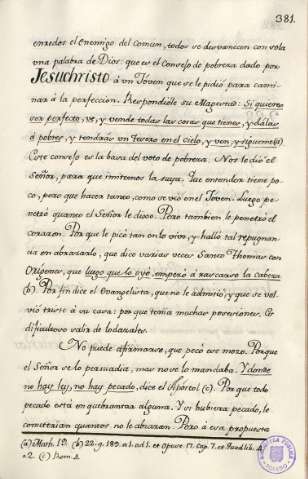 381
enredos el enemigo del comun, todos se desvanecen con sola
una palabra de Dios: que es el Consejo de pobreza dado por
Jesuchristo á un Joven que se le pidió para cami-
nar á la perfeccion. Respondióle su Magestad: Si quieres
ser perfecto, ve, y vende todas las cosas que tienes, y dálas
á pobres, y tendrás un tesoro en el cielo, y ven, y sigueme (a)
Este consejo es la basa del voto de pobreza. Nos le dió el
Señor, para que imitemos la suya. Que entender tiene po-
co, pero que hacer tanto, como se vió en el Joven. Luego pe-
netró quanto el Señor le dixo. Pero tambien le penetró el
corazon. Por que le picó tan en lo vivo, y halló tal repugnan-
cia en abrazarlo, que dice varias veces Santo Thomas con
Origenes, que luego que lo oyó, empezó á rascarse la cabeza
(b). Por fin dice el Evangelista, que no le admitió, y que se vol-
vió triste á su casa: por que tenia muchas posesiones. Es
dificultoso salir de lodazales.
No puede afirmarse, que pecó ese mozo. Porque
el Señor se lo persuadia, mas no se lo mandaba. Y donde
no hay ley, no hay pecado, dice el Apóstol (c). Por que todo
pecado está en quebrantar alguna. Y si hubiera pecado, le
cometerian quantos no le abrazan. Pero á esa propuesta
(a) Math. 19. (b) 22. q. 189. a. 1. ad 1. et Opusc. 17. Cap. 7. et
a 2. (c) Rom. 4
TOLEDO